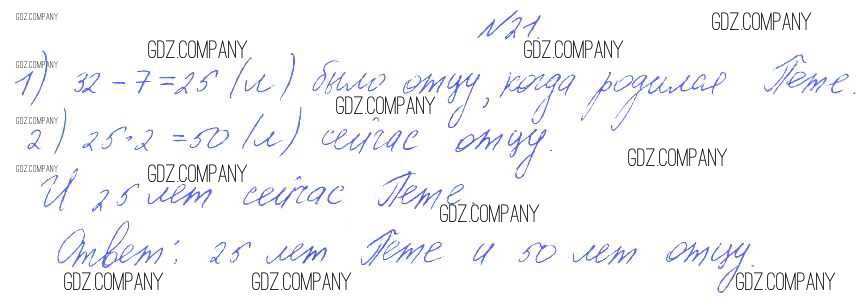 №21.
1) 32 - 7 = 25 (л) было отцу, когда родился Пете.
2) 25·2 = 50 (л) сейчас отцу.
И 25 лет сейчас Пете.
Ответ: 25 лет Пете и 50 лет отцу.
GDZ.COMPANY
GDZ.COMPANY
GDZ.COMPANY
GDZ.COMPANY
GDZ.COMPANY
GDZ.COMPANY
GDZ.COMPANY
GDZ.COMPANY
GDZ.COMPANY
GDZ.COMPANY
GDZ.COMPANY
GDZ.COMPANY
GDZ.COMPANY